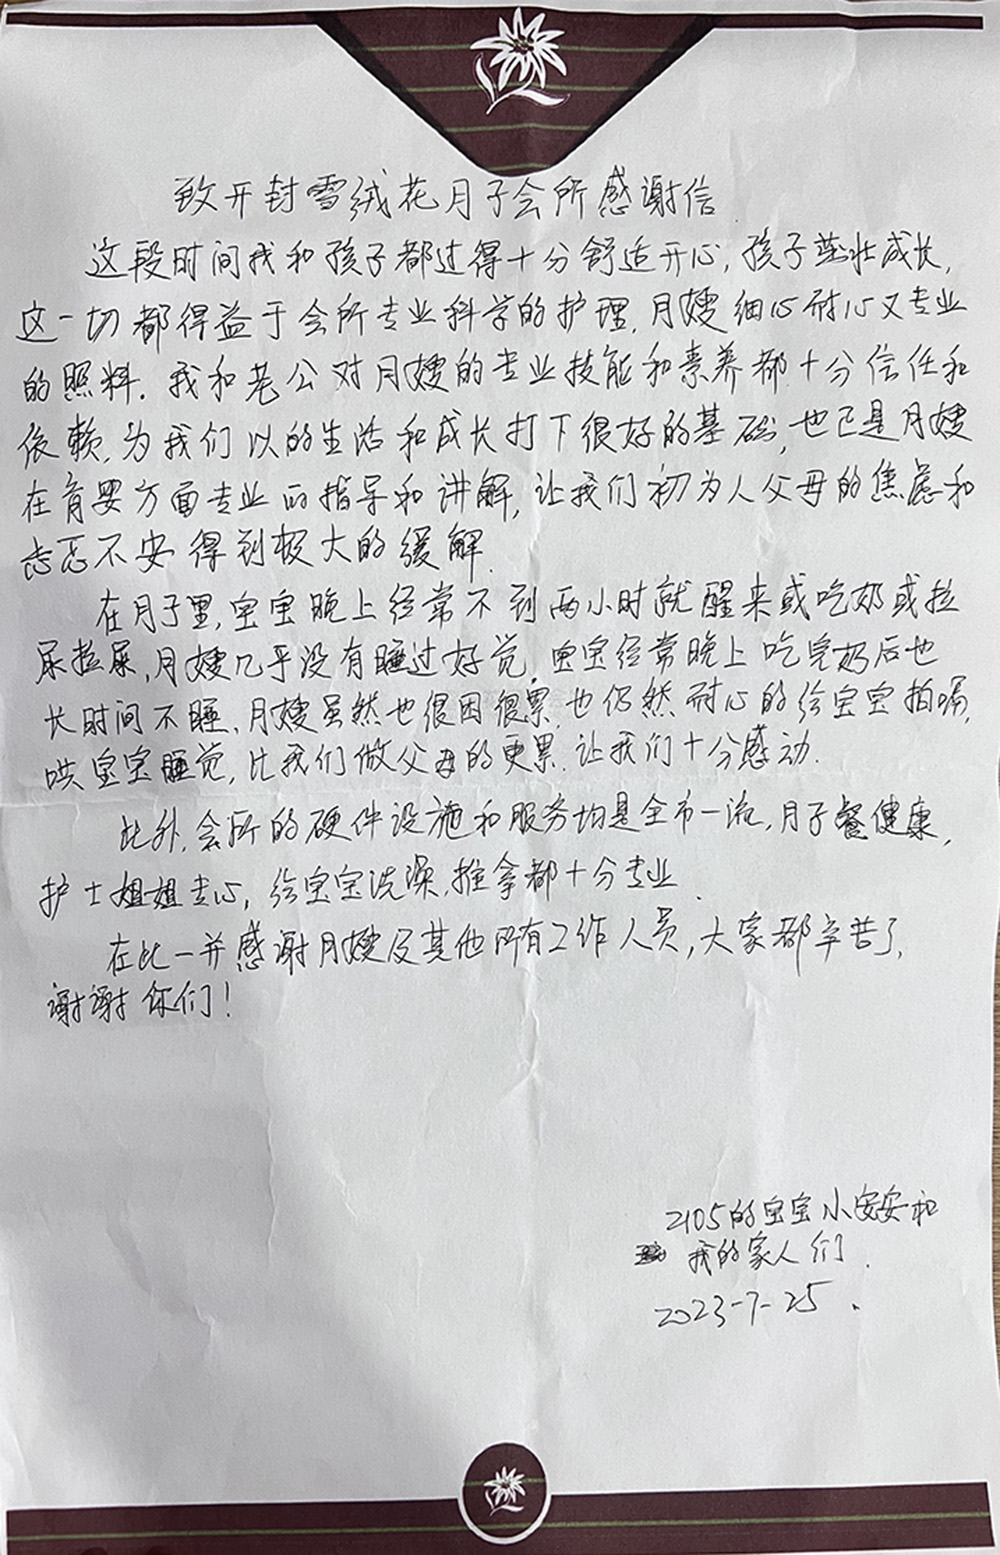 致开封雪绒花月子会所感谢信
这段时间我和孩子都过得十分舒适开心,孩子茁壮成长,
这一切都得益于会所专业科学的护理,月嫂细心耐心又专业
的照料.我和老公对月嫂的专业技能和素养都十分信任和
依赖,为我们以的生活和成长打下很好的基础,也已是月嫂
在育婴方面专业的指导和讲解,让我们初为人父母的焦虑和
忐忑不安得到极大的缓解.
在月子里,宝宝晚上经常不到两小时就醒来或吃奶或拉
尿拉屎,月嫂几乎没有睡过好觉,宝宝经常晚上吃完奶后也
长时间不睡,月嫂虽然也很困很累,也仍然耐心的给宝宝拍嗝,
哄宝宝睡觉,比我们做父母的更累.让我们十分感动.
此外,会所的硬件设施和服务均是全市一流,月子餐健康,
护士姐姐专心,给宝宝洗澡,推拿都十分专业.
在此一并感谢月嫂及其他所有工作人员,大家都辛苦了,
谢谢你们!
2105的宝宝小安安和
我的家人们.
2023-7-25.